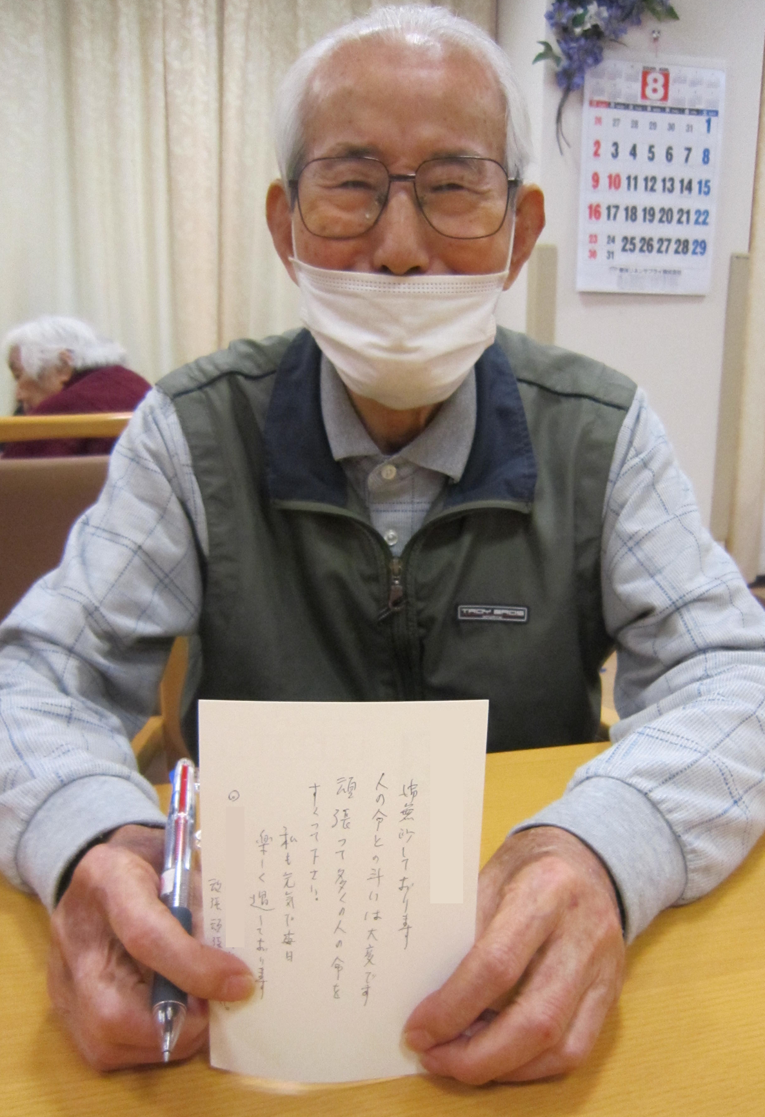 8
26 27 28 29 30 31 1
2 3 4 5 6 7 8
9 10 11 12 13 14 15
16 17 18 19 20 21 22
23 24 25 26 27 28 29
30 31
TROY BROS
しております
人の命との斗いは大変です
頑張って多くの人の命を
すくって下さい。
私も元気で毎日
楽しく過しております
頑張